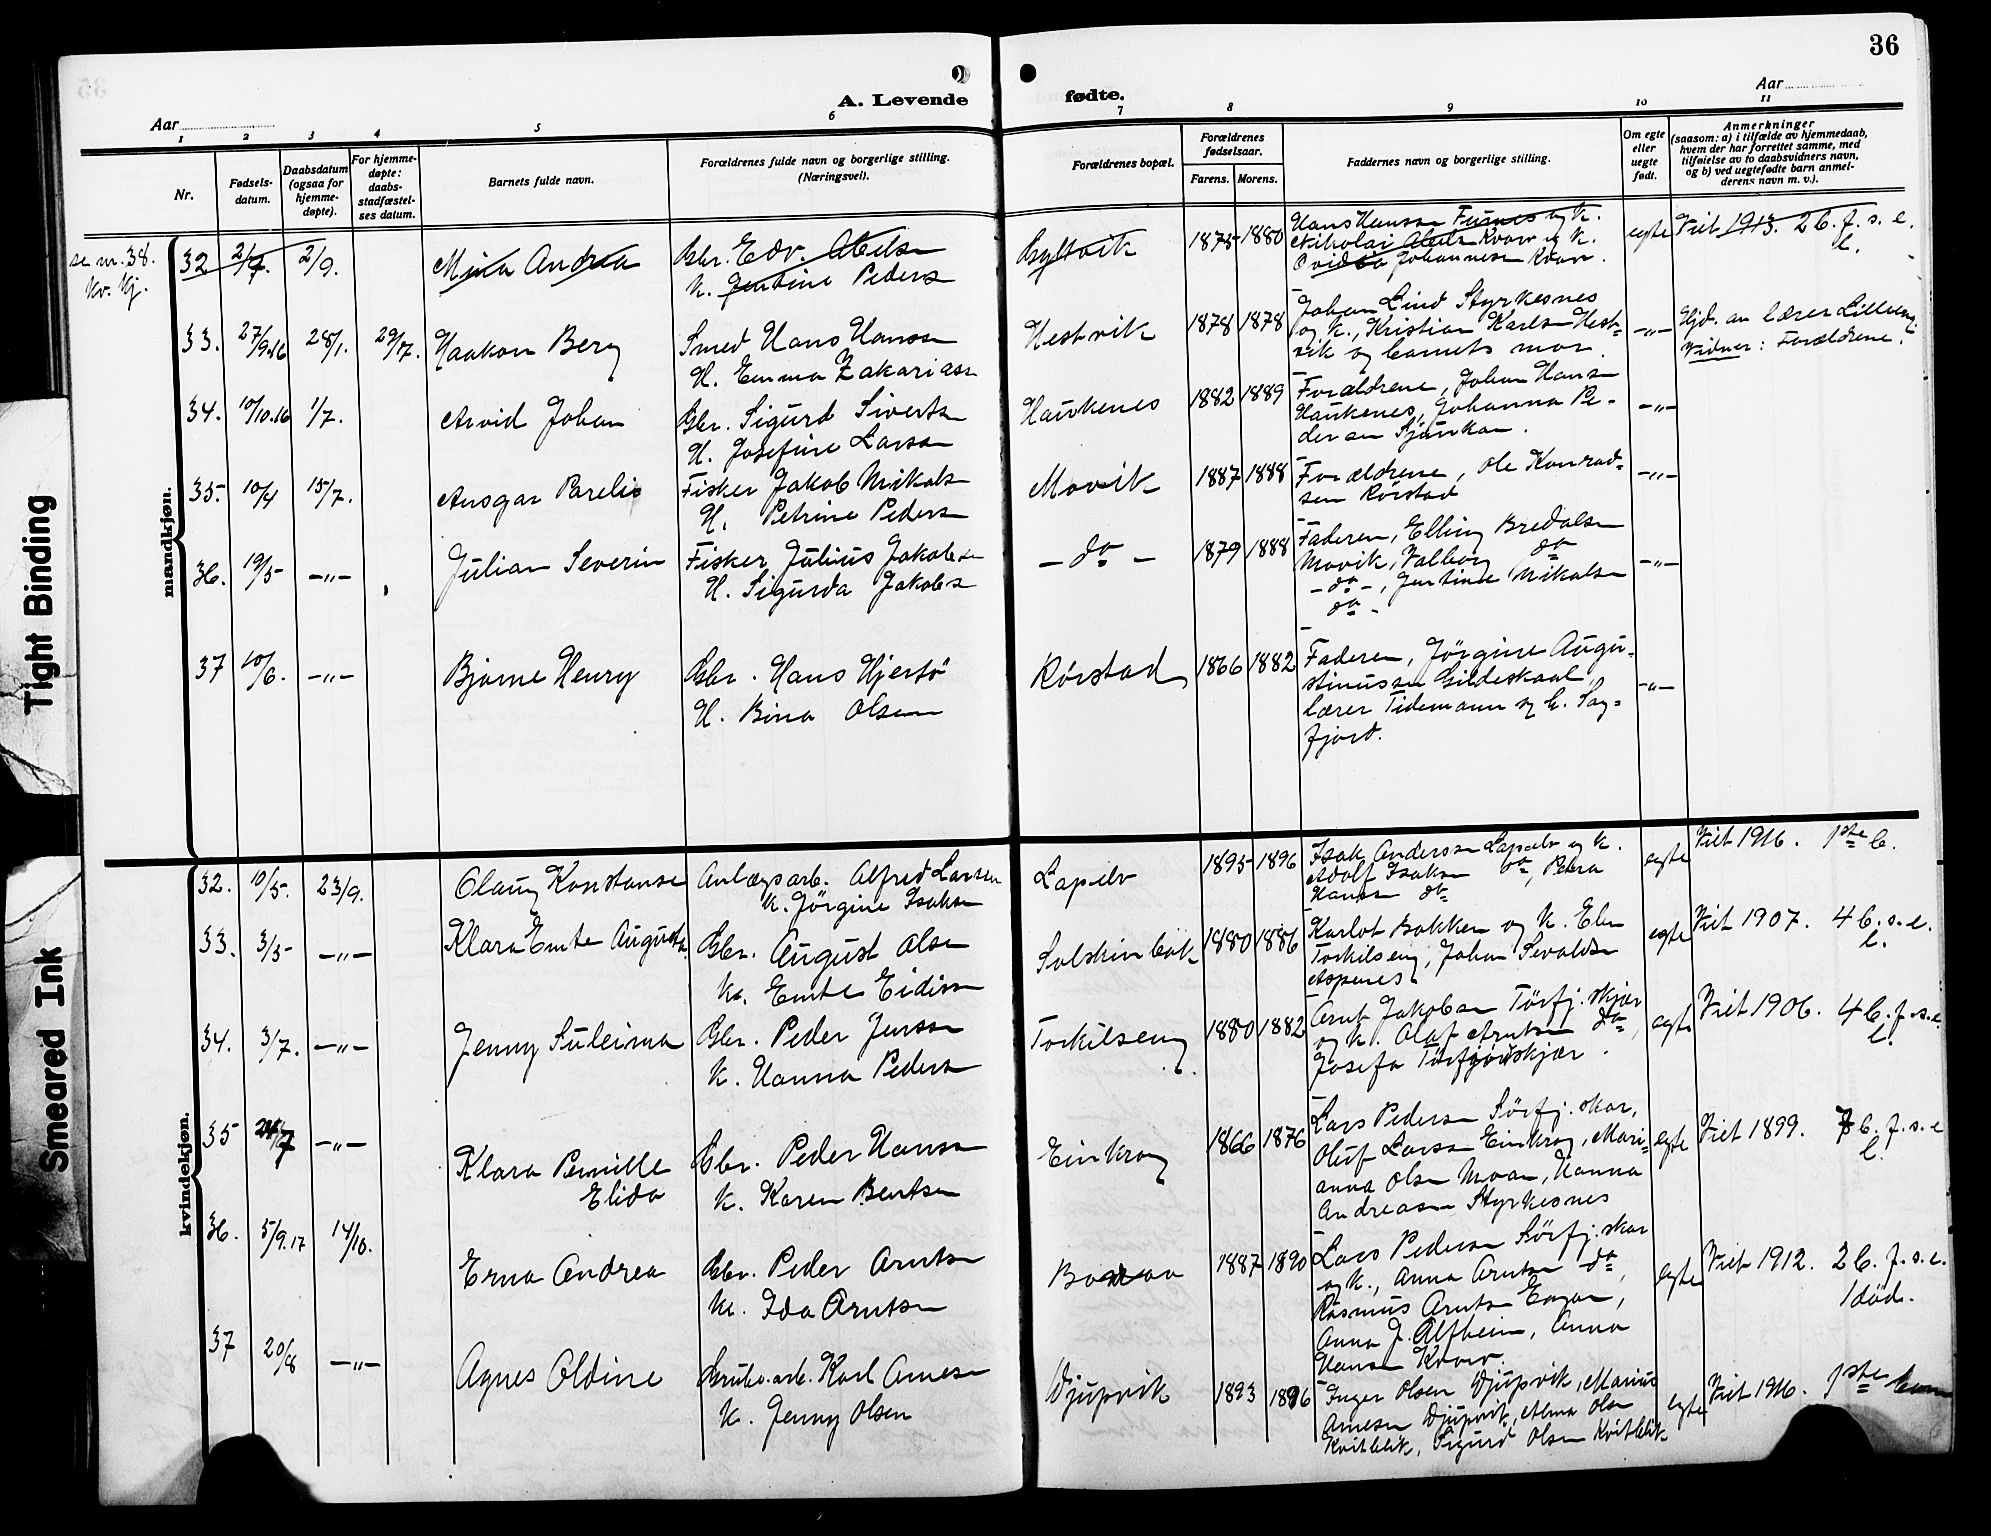 36
A. Levende fødte.
Aar
Aar
1 2 3 4 5 6 7 8 9 10 11
Nr.
Fødsels-
datum.
Daabsdatum
(ogsaa for
hjemme-
døpte).
For hjemme-
døpte:
daabs-
stadfæstel-
ses datum.
Barnets fulde navn.
Forældrenes fulde navn og borgerlige stilling.
(Næringsvei).
Forældrenes bopæl.
Forældrenes
fødselsaar.
Farens. Morens.
Faddernes navn og borgerlige stilling.
Om egte
eller
uegte
født.
Anmerkninger
(saasom: a) i tilfælde av hjemmedaab,
hvem der har forrettet samme, med
tilføielse av to daabsvidners navn,
og b) ved uegtefødte barn anmel-
derens navn m. v.).
mandkjøn.
se nr. 38.
kv. kj.
32 2/7. 2/9.
Mina Andrea
Gbr. Edv. Abelsen
K. Jentine Peders
Bytvik
1875 1880
Hans Hansen Fusnes og K.
Nikolai Abels Kvarv og K.
Ovidia Johannesen Kvarv.
egte
Viet 1913. 2 b. f. s. e.
l.
33. 27/9.16 28/1. 29/7.
Haakon Berg
Smed Hans Hansen
H. Emma Zakariasen
Hestvik
1878 1878
Johan Lind Styrkesnes
og K., Kristian Karlsen Hest-
vik og barnets mor.
-„-
Hjd. av lærer Lilleeng.
Vidner: Forældrene.
34. 10/10.16 1/7.
Arvid Johan
Gbr. Sigurd Sivertsen
H. Josefine Larsen
Haukenes
1882 1889
Forældrene, Johan Hansen
Haukenes, Johanna Pe-
dersen Sjunkan.
-„-
35. 10/4 15/7.
Ansgar Parelis
Fisker Jakob Nikolsen
H. Petrine Peders
Movik
1887 1888
Forældrene, Ole Konrad-
sen Rørstad
-„-
36. 19/5 -„-
Julian Severin
Fisker Julius Jakobsen
H. Sigurda Jakobsen
- do -
1879 1888
Faderen, Elling Bredalsen
Movik, Valborg do
- do -, Jentine Nikolsen
do -
-„-
37 10/6. -„-
Bjarne Henry
Gbr. Hans Hjertö
H. Bina Olsen
Rørstad
1866 1882
Faderen, Jørgine Augu-
stinussen Gildeskaal,
lærer Tidemann og h. Sag-
fjord.
-„-
kvindekjøn.
32. 10/5. 23/9.
Olaug Konstanse
Anlægsarb. Alfred Larsen
K. Jörgine Isaksen
Lapelv
1895 1896
Isak Andersen Lapelv og K.
Adolf Isaksen do, Petra
Hansen do
egte
Viet 1916. 1ste b.
33. 3/5 -„-
Klara Emte Augusta.
Gbr. August Olsen
K. Emte Eidissen
Solskinbak
1880 1886
Karlot Bakken og K. Elen
Torkilseng, Johan Sivaldsen
Aspenes
egte
Viet 1907. 4 b. s. e.
l.
34. 3/7. -„-
Jenny Suleima
Gbr. Peder Jensen
K. Hanna Pedersen
Torkilseng
1880 1882
Arnt Jakobsen Törfj. skjær
og K. Olaf Arntsen do,
Josefa Törfjordskjær.
egte
Viet 1906. 4 b. f. s. e.
l.
35 24/7 -„-
Klara Pernille
Elida
Gbr. Peder Hansen
K. Karen Bentsen
Einkrog
1866 1876
Lars Pedersen Sörfj. skar,
Oluf Larsen Einkrog, Mari-
anna Olsen Moan, Hanna
Andreasen Styrkesnes
egte
Viet 1899. 7 b. f. s. e
l.
36. 5/9.17 14/10.
Erna Andrea
Gbr. Peder Arntsen
K. Ida Arntsen
1887 1890
Lars Pedersen Sörfj. skar
og K., Anna Arntsen do,
Rasmus Arntsen Engan,
Anna J. Alfheim, Anna
Hansen Kvarv.
egte
Viet 1912. 2 b. f. s. e.
1 död.
37 20/8 -„-
Agnes Oldine
Grubearb. Karl Arnesen
K. Jenny Olsen
Djupvik
1893 1896
Inger Olsen Djupvik, Marius
Arnesen Djupvik, Alma Olsen
Kvitblik, Sigurd Olsen Kvitblik
egte
Viet 1916. 1ste barn
Tight Binding
Smeared Ink